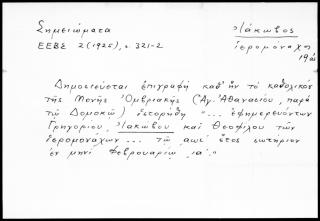 Σημειώματα
ΕΕΒΣ 2 (1925), σ. 321-2
Ἰάκωβος
ἱερομόναχος
19ος
Δημοσιεύεται ἐπιγραφὴ καθ' ἣν τὸ καθολικὸν
τῆς Μονῆς Ὀμβριακῆς (Ἁγ. Ἀθανασίου, παρὰ
τῷ Δομοκῷ) ἱστορήθη "... ἐφημερευόντων
Γρηγορίου, Ἰακώβου καὶ Θεοφίλου τῶν
ἱερομονάχων ... τῷ αωι΄ ἔτος σωτήριον
ἐν μηνὶ Φεβρουαρίῳ ια΄."